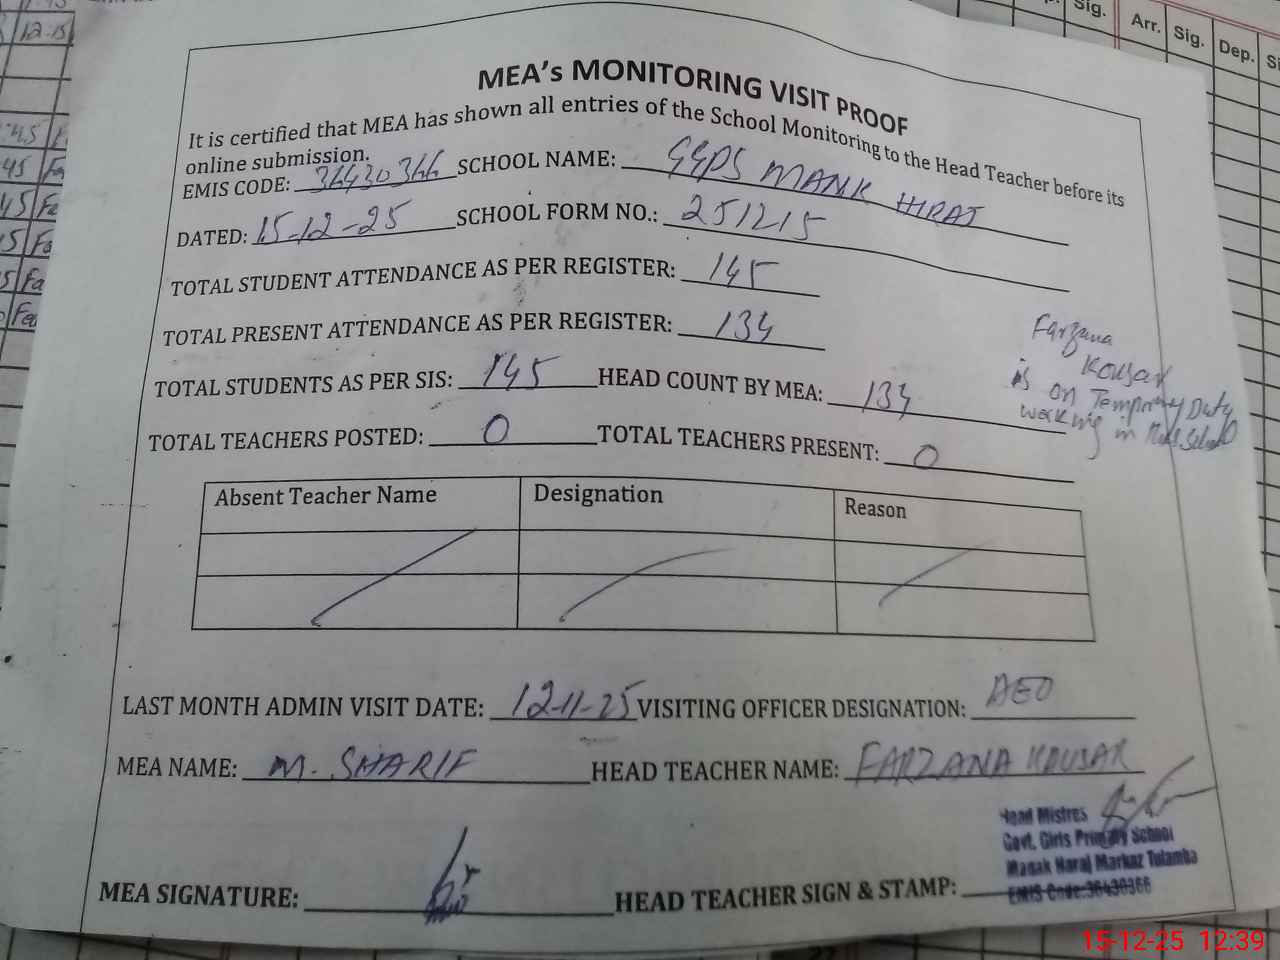 Sig.
Arr. Sig. Dep.
12-15
MEA's MONITORING VISIT PROOF
It is certified that MEA has shown all entries of the School Monitoring to the Head Teacher before its
online submission.
EMIS CODE: 36430366 SCHOOL NAME: GGPS MANK HIRAJ
DATED: 15-12-25 SCHOOL FORM NO.: 251215
TOTAL STUDENT ATTENDANCE AS PER REGISTER: 145
TOTAL PRESENT ATTENDANCE AS PER REGISTER: 134
TOTAL STUDENTS AS PER SIS: 145 HEAD COUNT BY MEA: 134
TOTAL TEACHERS POSTED: 0 TOTAL TEACHERS PRESENT: 0
Farzana
Kousar
is on Temporary Duty
working in School
Absent Teacher Name Designation Reason
LAST MONTH ADMIN VISIT DATE: 12-11-25 VISITING OFFICER DESIGNATION: AEO
MEA NAME: M. SHARIF HEAD TEACHER NAME: FARZANA KOUSAR
MEA SIGNATURE: HEAD TEACHER SIGN & STAMP:
Head Mistres
Govt. Girls Primary School
Manak Haraj Markaz Tulamba
EMIS Code:36430366
15-12-25 12:39